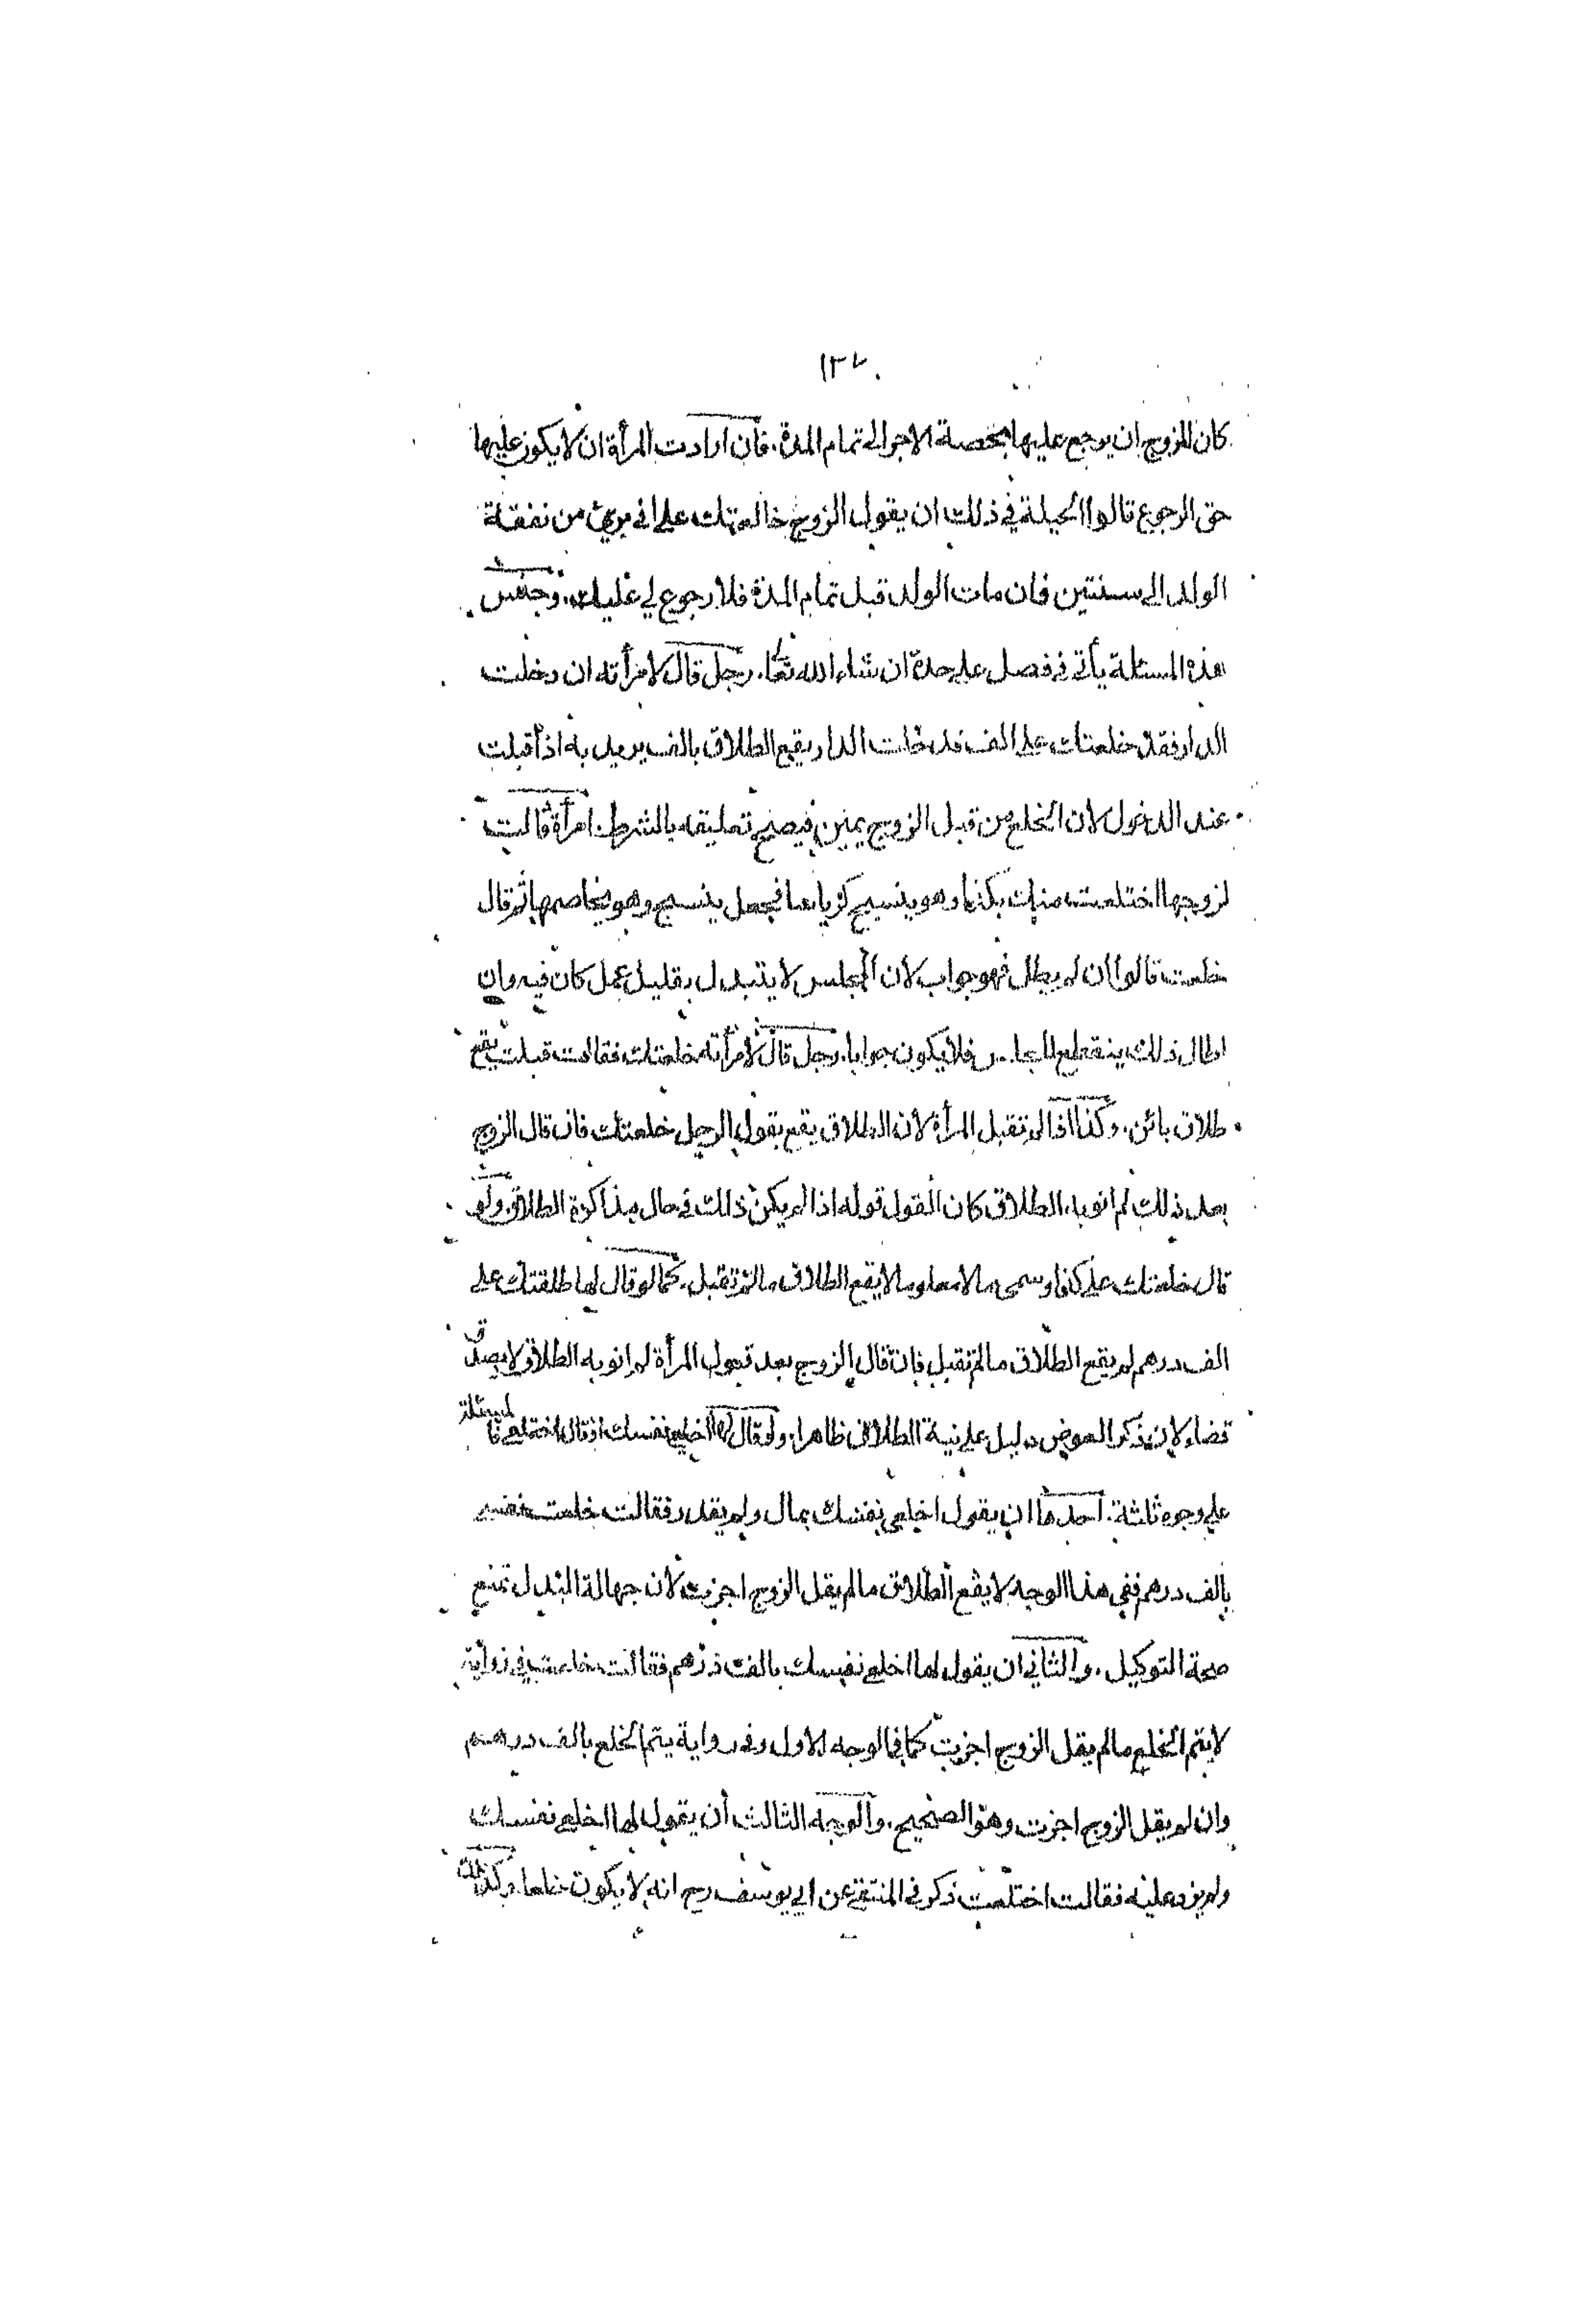 ١٣٧
كان للزوج ان يرجع عليها بحصة الاجر الى تمام المدة. فان ارادت المرأة ان لا يكون عليها
حق الرجوع قالوا الحيلة في ذلك ان يقول الزوج خالعتك على اني بريئ من نفقة
الولد الى سنتين فان مات الولد قبل تمام المدة فلا رجوع لي عليك. وجنس
هذه المسئلة يأتي في فصل على حدة ان شاء الله تعا. رجل قال لامرأته ان دخلت
الدار فقد خلعتك على الف فدخلت الدار يقع الطلاق بالف يريد به اذا قبلت
عند الدخول لان الخلع من قبل الزوج يمين فيصح تعليقه بالشرط. امرأة قالت
لزوجها اختلعت منك بكذا وهو ينسج كرباسا فجعل ينسج وهو يخاصمها ثم قال
خلعت قالوا ان لم يطل فهو جواب لان المجلس لا يتبدل بقليل عمل كان فيه وان
اطال ذلك ينقطع المجلس فلا يكون جوابا. رجل قال لامرأته خلعتك فقالت قبلت يقع
طلاق بائن. وكذا اذا لم تقبل المرأة لان الطلاق يقع بقول الرجل خلعتك فان قال الزوج
بعد ذلك لم انو به الطلاق كان القول قوله اذا لم يكن ذلك في حال مذاكرة الطلاق ولو
قال خلعتك على كذا وسمى مالا معلوما لا يقع الطلاق ما لم تقبل. كما لو قال لها طلقتك على
الف درهم لم يقع الطلاق ما لم تقبل فان قال الزوج بعد قبول المرأة لم انو به الطلاق لا يصدق
قضاء لان ذكر العوض دليل على نية الطلاق ظاهرا. ولو قال لها اخلعي نفسك او قال اختلعي فالمسئلة
على وجوه ثلثة. احدها ان يقول اخلعي نفسك بمال ولم يقدر فقالت خلعت نفسي
بالف درهم ففي هذا الوجه لا يقع الطلاق ما لم يقل الزوج اجزت لان جهالة البدل تمنع
صحة التوكيل. والثاني ان يقول لها اخلعي نفسك بالف درهم فقالت خلعت في رواية
لا يتم الخلع ما لم يقل الزوج اجزت كما في الوجه الاول وفي رواية يتم الخلع بالف درهم
وان لم يقل الزوج اجزت وهو الصحيح. والوجه الثالث ان يقول لها اخلعي نفسك
ولم يزد عليه فقالت اختلعت ذكر في المنتقى عن ابي يوسف رح انه لا يكون خلعا. وكذلك